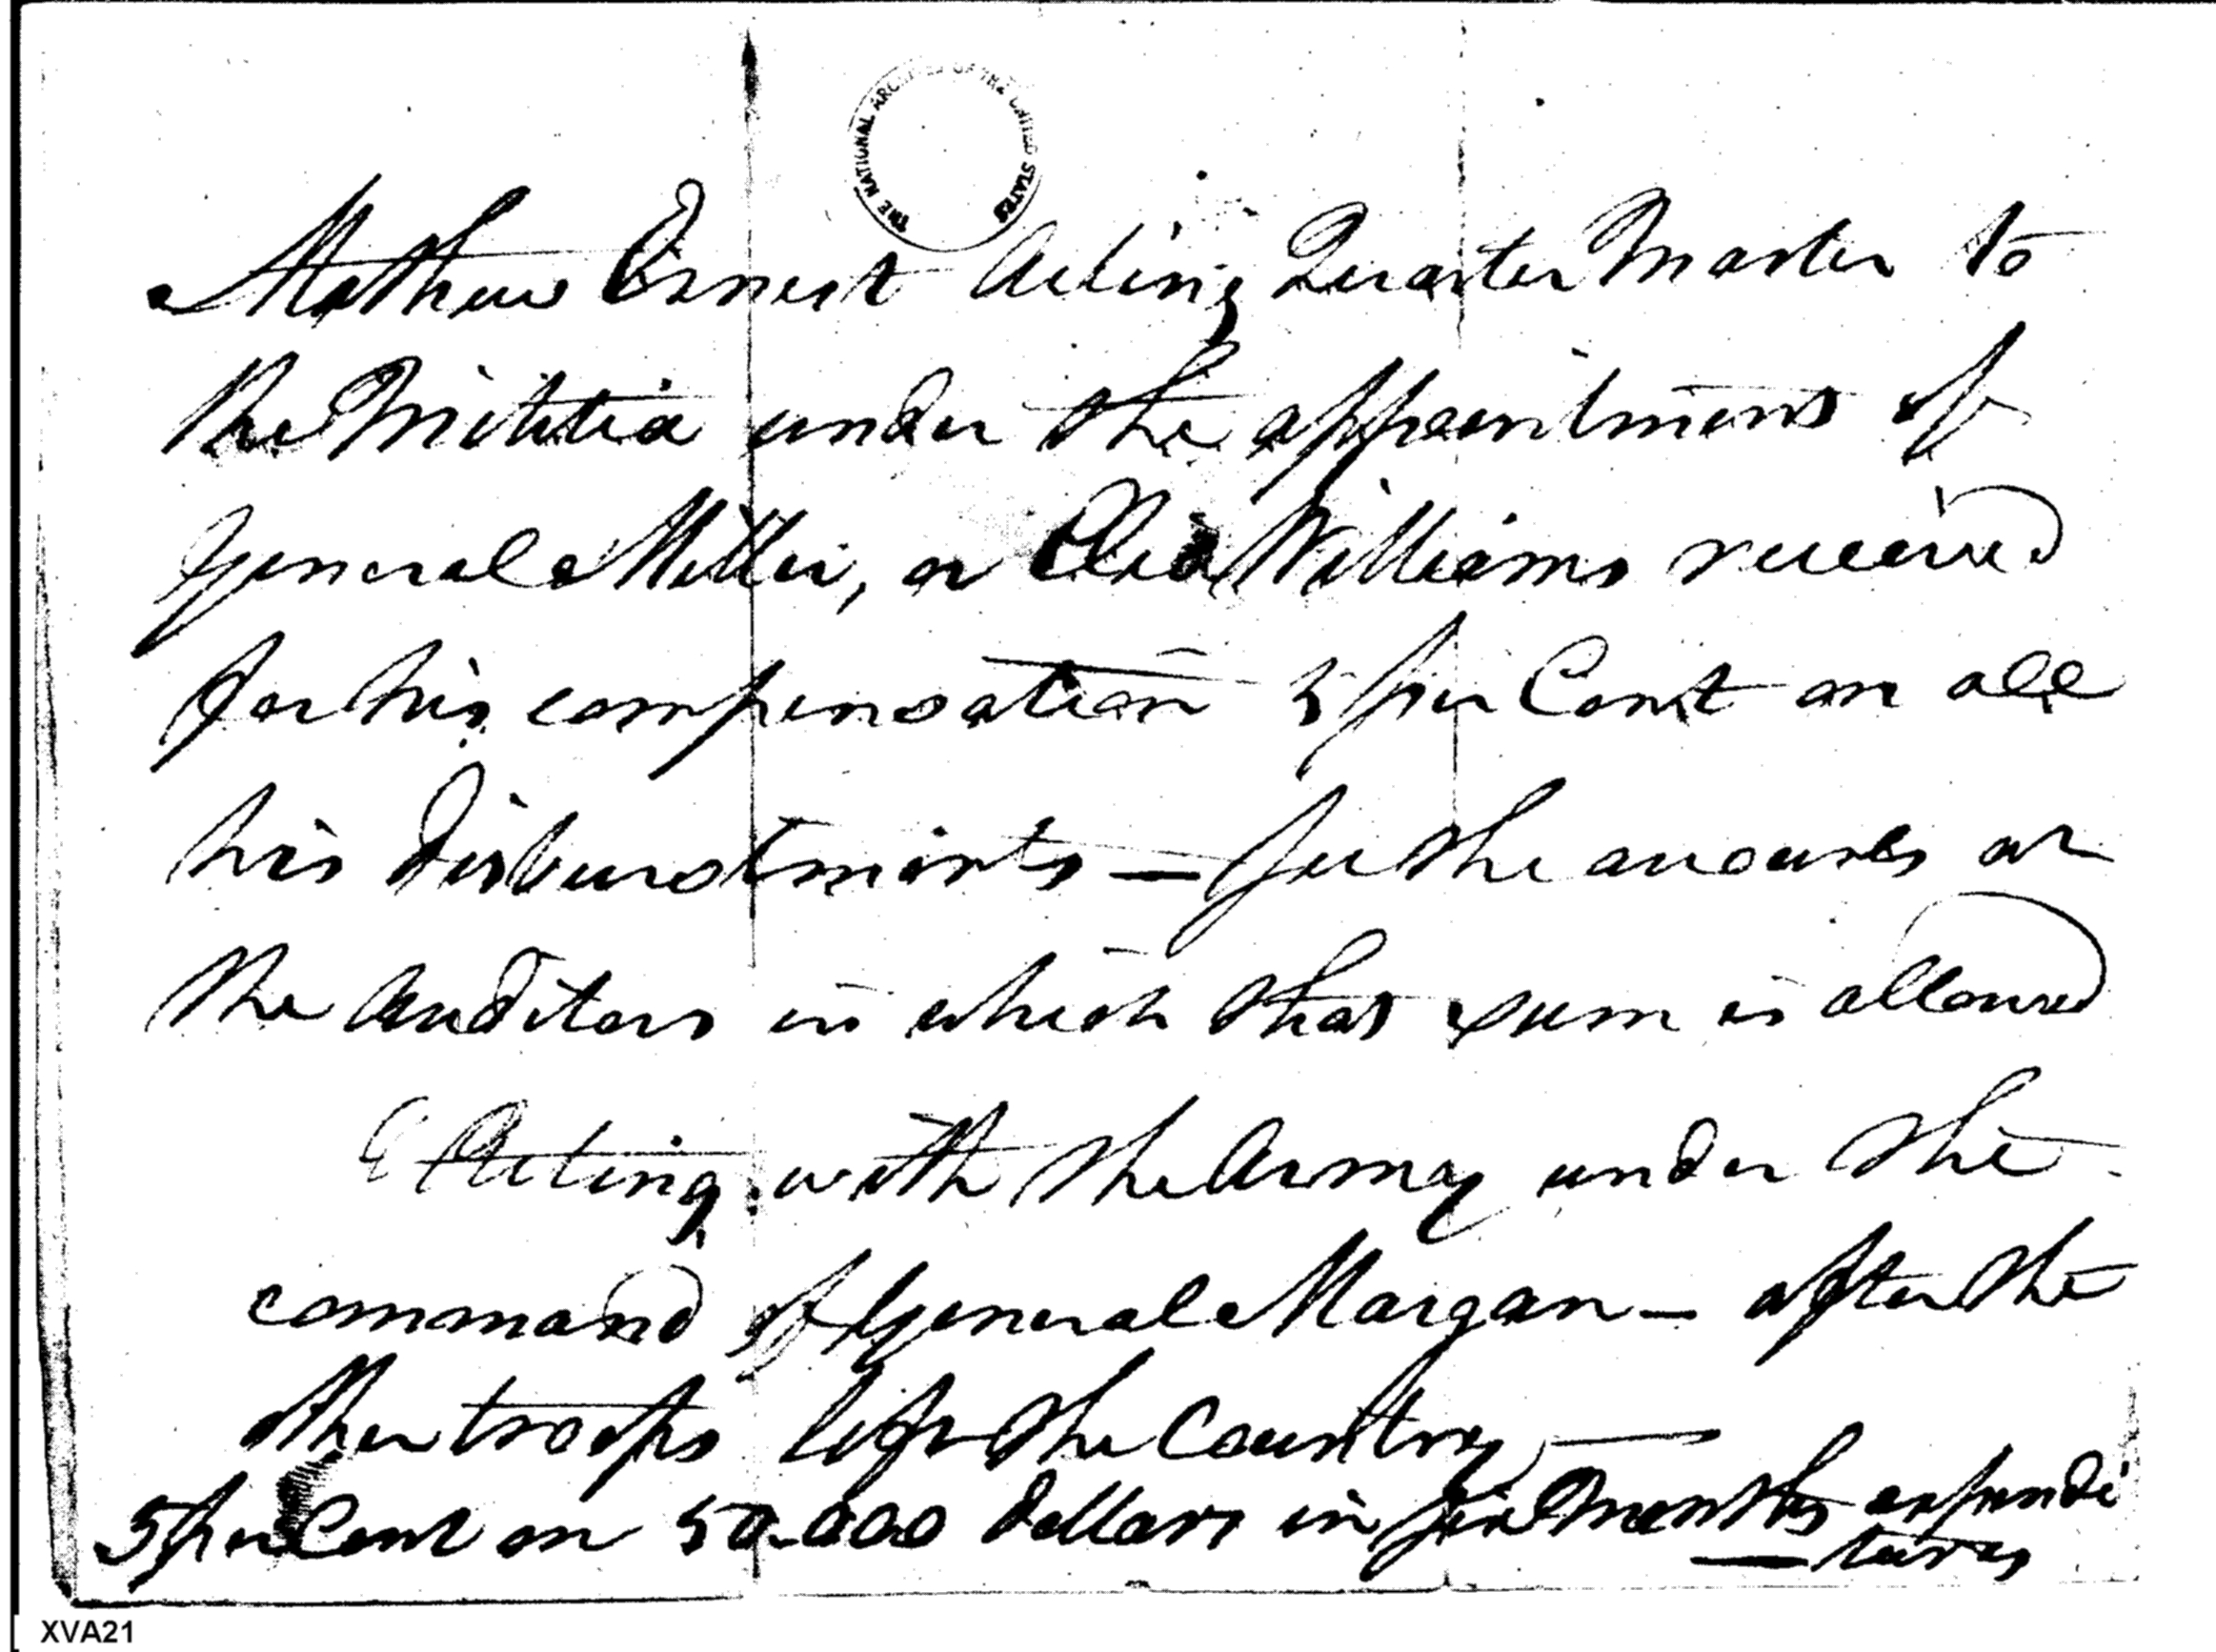 THE NATIONAL ARCHIVES OF THE UNITED STATES
Mathew Ernest Acting Quarter Master to
the Militia under the appointment of
General Miller, or Elie Williams received
for his compensation 5 per Cent on all
his disburstments — See the accounts at
the Auditors in which that sum is allowed
Acting with the Army under the
command of General Morgan — after the
other troops left the Country —
5 per Cent on 50.000 dollars in six Months expendi
— tures
XVA21